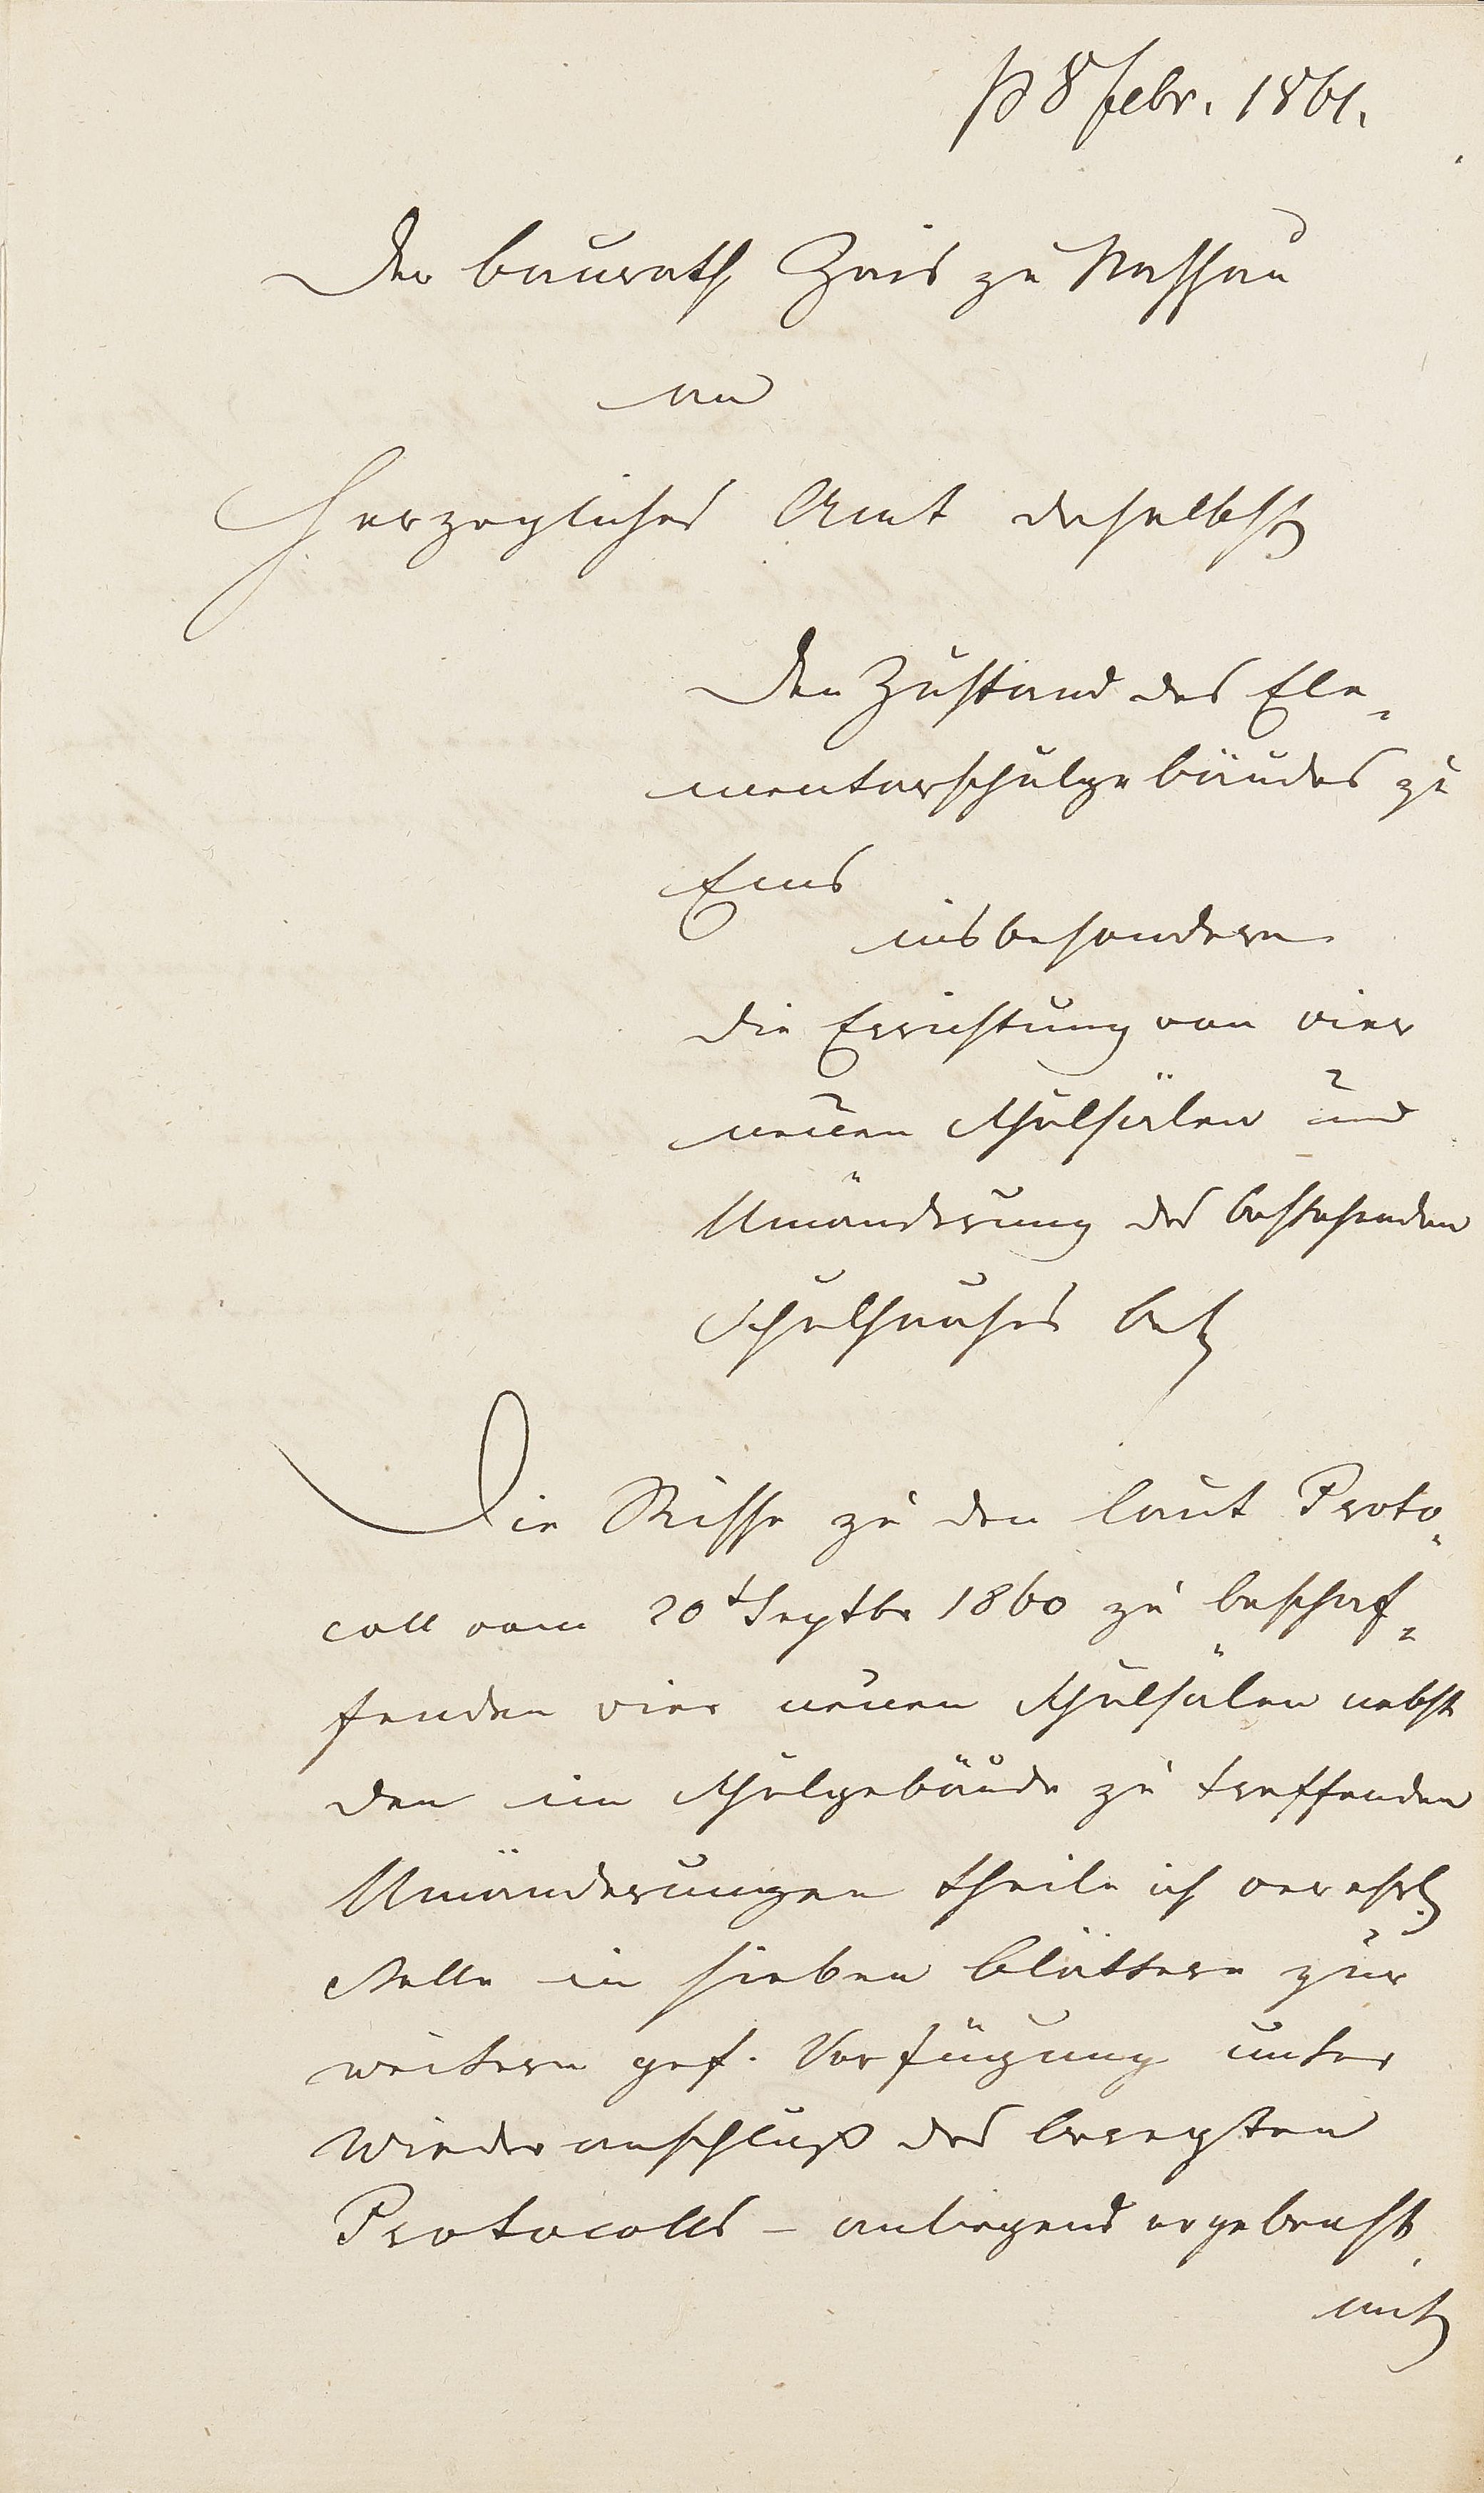 8 Febr. 1861.
Der Baurath Zais zu Nassau
an
Herzogliches Amt daselbst
Den Zustand des Ele-
mentarschulgebäudes zu
Ems
insbesondere
die Errichtung von vier
neuen Schulsälen und
Umänderung des bestehenden
Schulhauses betr
Die Risse zu den laut Proto-
coll vom 20t Septbr 1860 zu beschaf-
fenden vier neuen Schulsälen nebst
den im Schulgebäude zu treffenden
Umänderungen theile ich verehrl.
Stelle in sieben Blättern zur
weitern gef. Verfügung unter
Wiederanschluß des beregten
Protocolls - anliegend ergebenst
mit